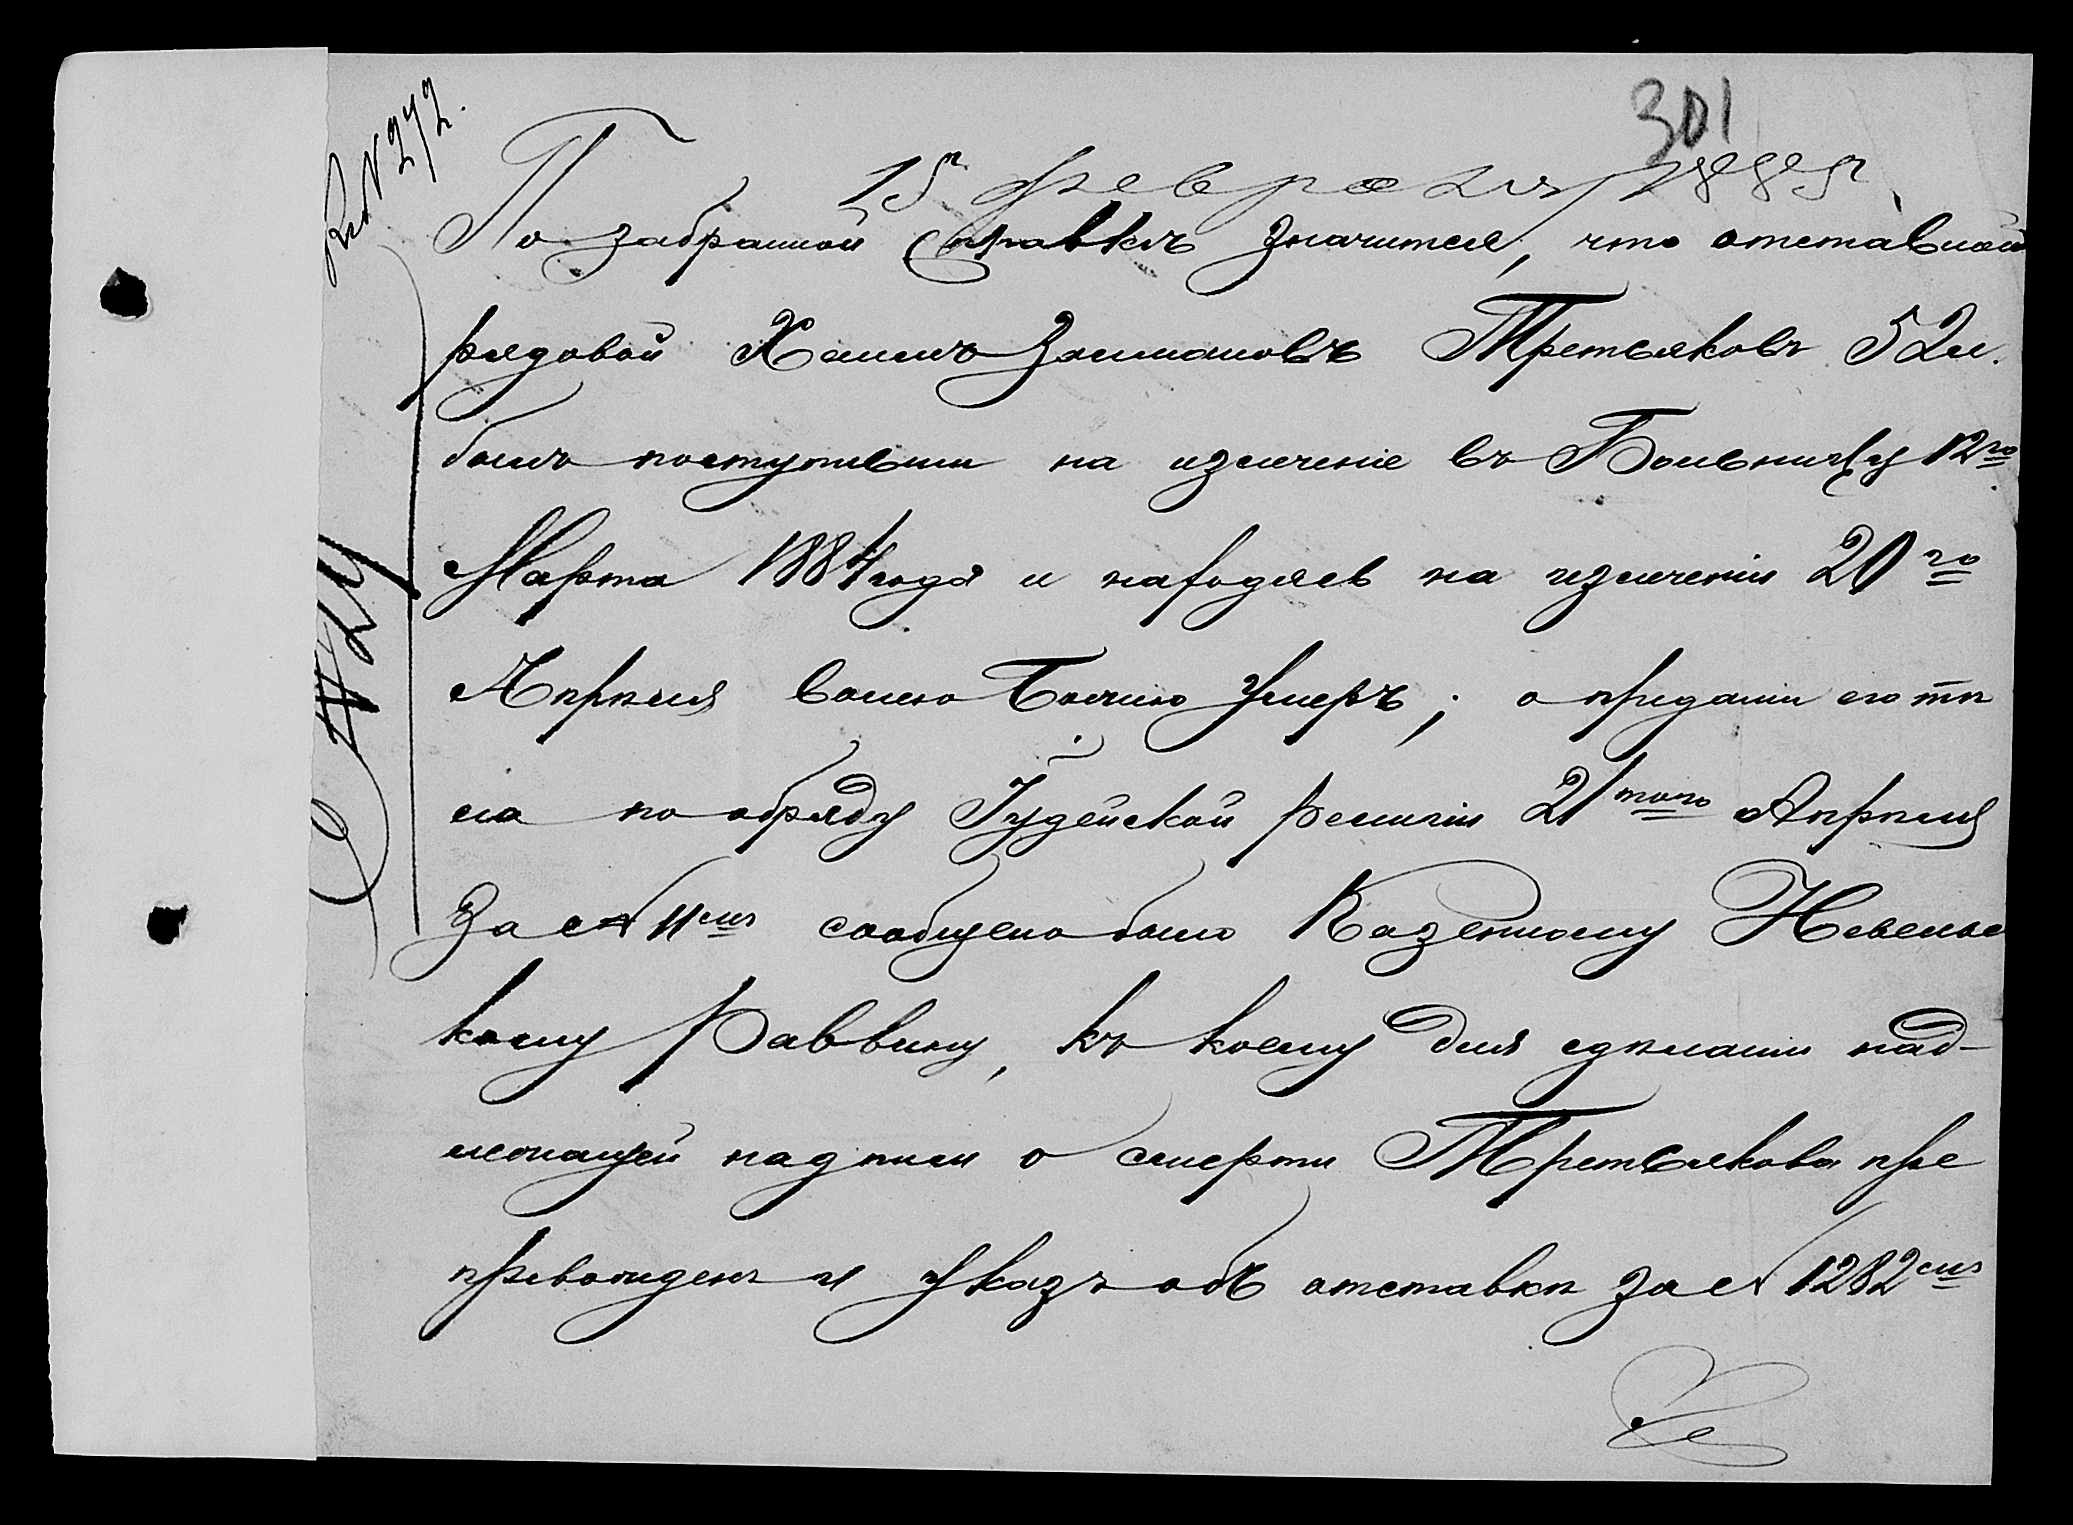 301
15 февраля 1885 г.
По забранной Справкѣ значится, что отставной
рядовой Хаимъ Залмановъ Третьяковъ 52 л.
былъ поступивши на излеченіе въ Больницу 12го
Марта 1884 года и находясь на излеченіи 20го
Апрѣля волею Божіею Умеръ; о преданіи его тѣ
ла по обряду Іудейской религіи 21того Апрѣля
за № 11мъ сообщено было Казенному Невельс
кому Раввину, къ коему для сдѣланія над-
лежащей надписи о смерти Третьякова пре
провожденъ и Указъ объ отставкѣ за № 1282мъ
№ 272.